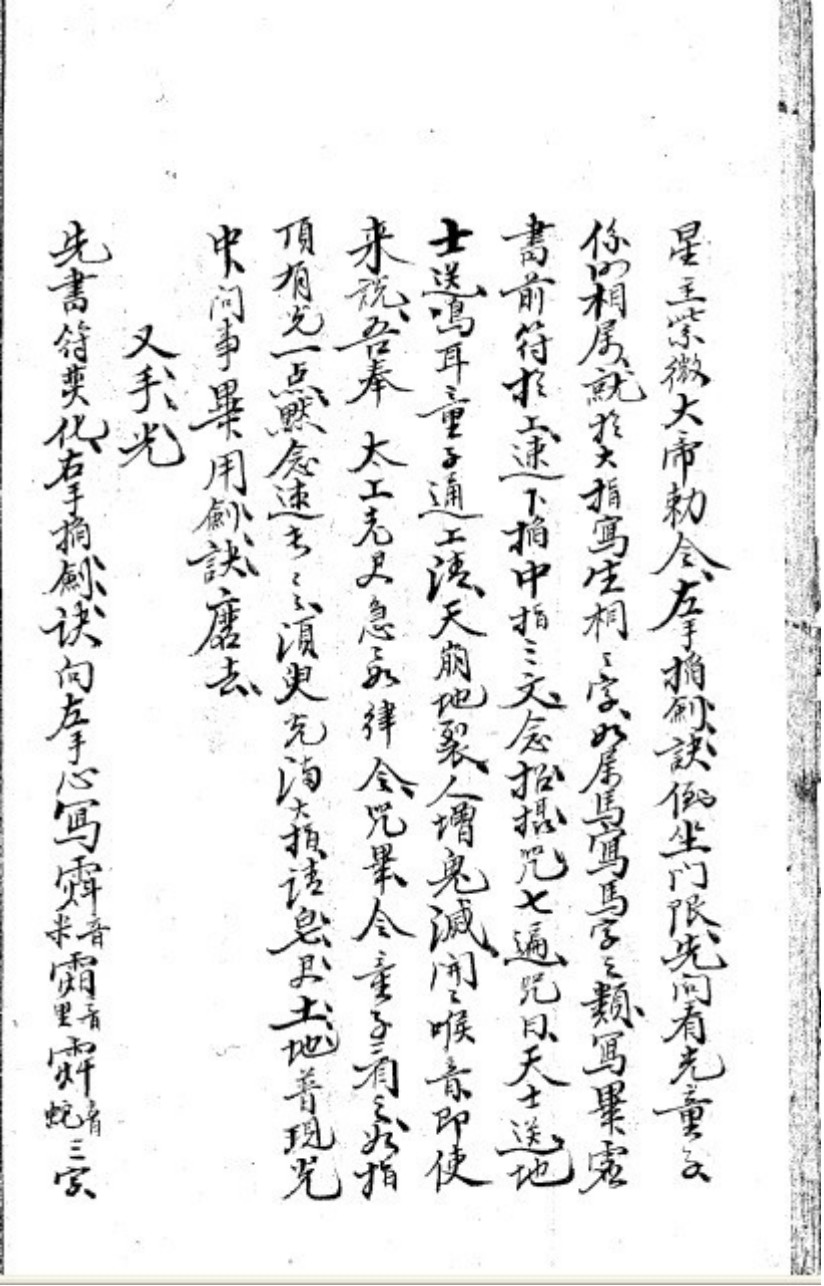 星主紫微大帝勅令左手掐劍訣倒坐门限先问看光童子
係的相属就於大指寫生相之字如属馬寫馬字之類寫畢虚
書前符於上速下掐中指三文念招攝咒七遍咒曰天士送地
士送鳴耳童子通上清天崩地裂人增鬼滅開之喉音即使
来說吾奉太上老君急如律令咒畢令童子二看之如指
頂有光一点默念速去之須臾光滿大指請皂君土地普現光
中问事畢用劍訣磨去
又手光
先書符焚化右手掐劍訣向左手心寫音米音里音蛇三字